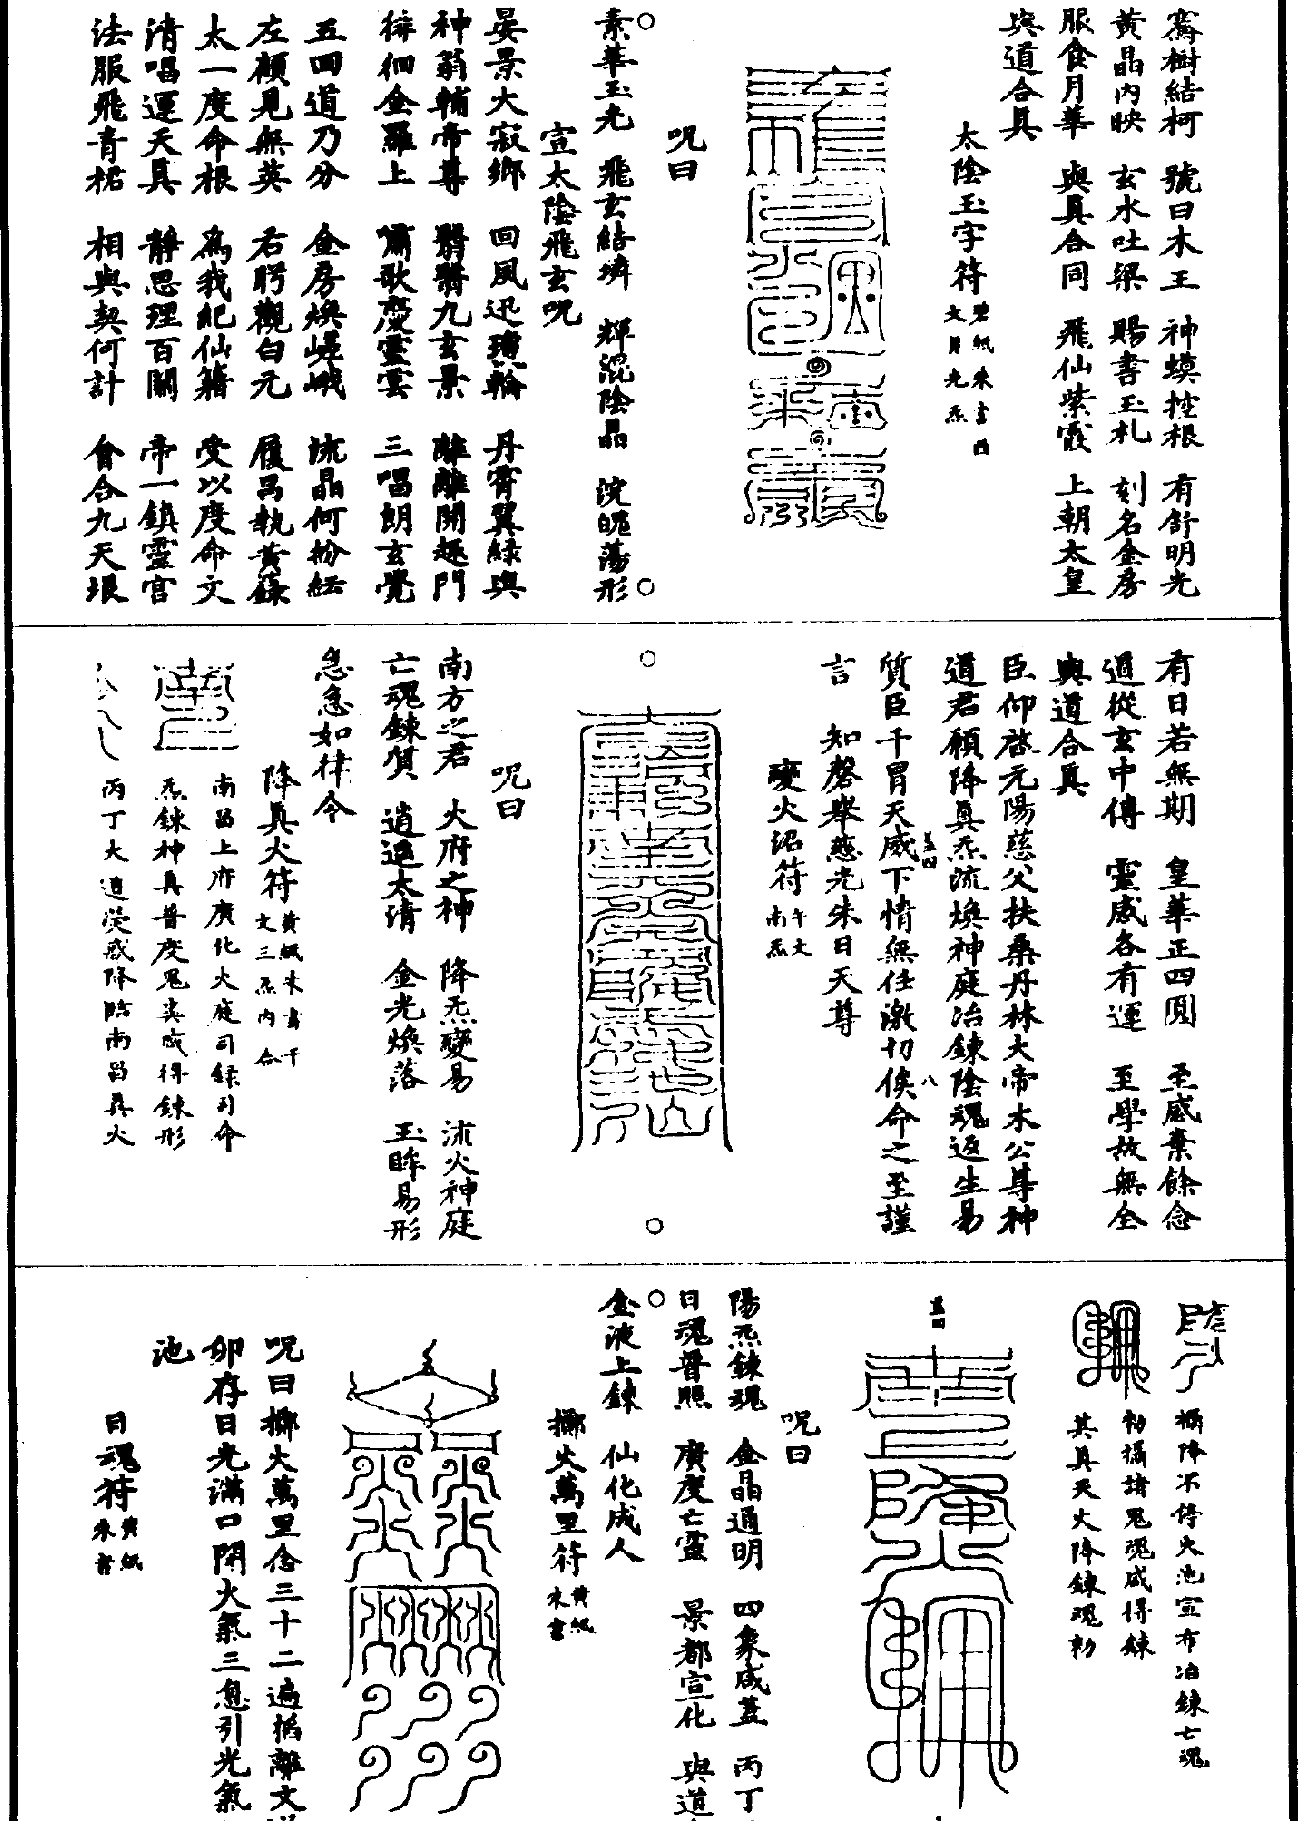 騫樹結柯　號曰木王　神蟆控根　有舒明光
黃晶內映　玄水吐梁　賜書玉札　刻名金房
服食月華　與真合同　飛仙紫霞　上朝太皇
與道合真
太陰玉字符
碧紙朱書酉
文月光炁
呪曰
素華玉光　飛玄結璘　輝混陰晶　沇魄蕩形
宣太陰飛玄呪
晏景大寂鄉　回風迅瓊輪　丹霄翼綠輿
神翁輔帝尊　翳翳九玄景　離離開趣門
徘徊金羅上　嘯歌慶靈雲　三唱朗玄覺
五回道乃分　金房煥嵯峨　流晶何紛紜
左顧見無英　右盻觀白元　履昌執黃籙
太一度命根　為我紀仙籍　受以度命文
清唱運天真　靜思理百關　帝一鎮靈宮
法服飛青裙　相與契何計　會合九天垠
有日若無期　皇華正四圓　至感棄餘念
道從玄中傳　靈感各有運　至學故無全
與道合真
臣仰啓元陽慈父扶桑丹林大帝木公尊神
道君願降真炁流煥神庭冶鍊陰魂返生易
質臣千冒天威下情無任激切俟命之至謹
言　知磬舉慈光朱日天尊
變火沼符
午文
南炁
呪曰
南方之君　火府之神　降炁變易　流火神庭
亡魂鍊質　逍遥太清　金光煥落　玉眸易形
急急如律令
降真火符
黃紙朱書千
文三炁內合
南昌上府廣化火庭司錄司命
炁鍊神真普度鬼爽咸得鍊形
丙丁大道熒惑降臨南昌真火
攝降不停火池宣布冶鍊亡魂
勑攝諸鬼魂咸得鍊
其真天火降鍊魂勑
呪曰
陽炁鍊魂　金晶通明　四象成蓋　丙丁
日魂普照　廣度亡靈　景都宣化　與道
金液上鍊　仙化成人
擲火萬里符
黃紙
朱書
呪曰擲火萬里念三十二遍掐離文
卯存日光滿口閉火氣三息引光氣
池
日魂符
黃紙
朱書